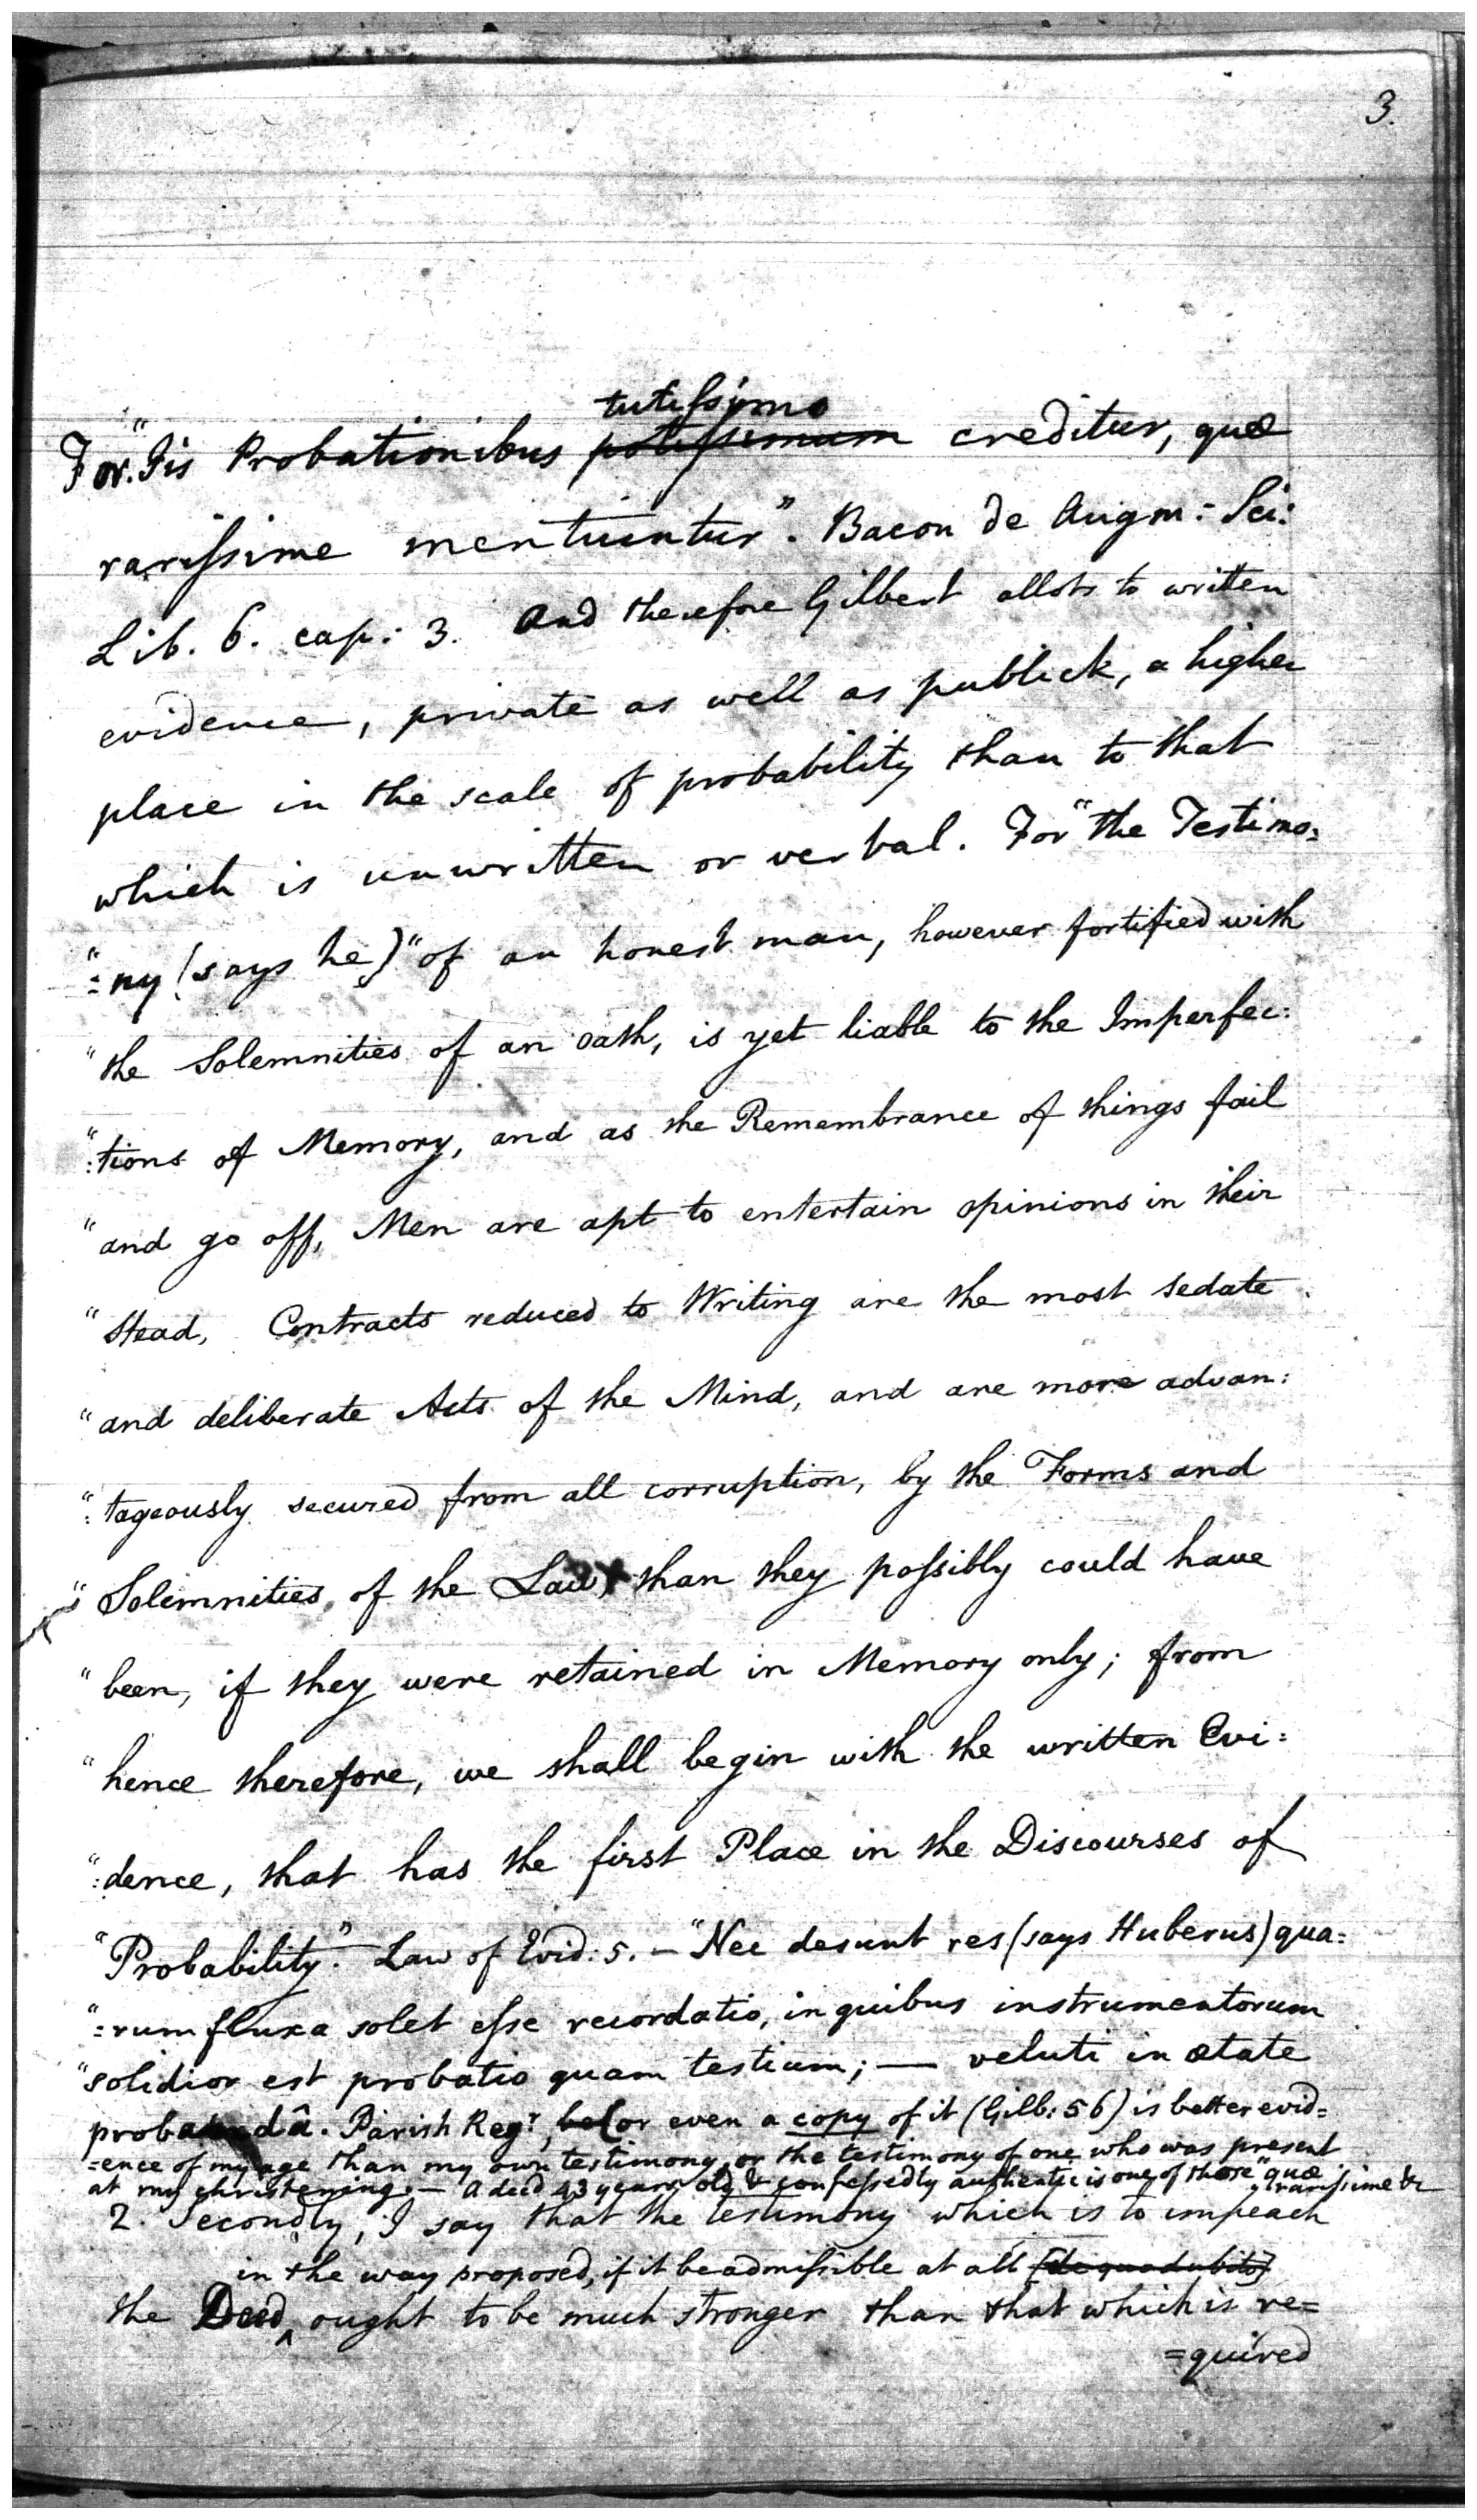 3.
tutissimo
For. "Iis Probationibus potissimum creditur, quæ
rarissime mentiuntur". Bacon de Augm: Sci:
Lib. 6. cap: 3. And therefore Gilbert allots to written
evidence, private as well as publick, a higher
place in the scale of probability than to that
which is unwritten or verbal. For "the Testimo:
":ny (says he) "of an honest man, however fortified with
"the Solemnities of an oath, is yet liable to the Imperfec:
":tions of Memory, and as the Remembrance of things fail
"and go off, Men are apt to entertain opinions in their
"Stead, Contracts reduced to Writing are the most sedate
"and deliberate Acts of the Mind, and are more advan:
":tageously secured from all corruption, by the Forms and
"Solemnities of the Law, than they possibly could have
"been, if they were retained in Memory only; from
"hence therefore, we shall begin with the written Evi:
":dence, that has the first Place in the Discourses of
"Probability." Law of Evid: 5. — "Nec desunt res (says Huberus) qua=
"=rum fluxa solet esse recordatio, in quibus instrumentorum
"solidior est probatio quam testium; — veluti in ætate
probandâ. Parish Regr, (or even a copy of it (Gilb: 56) is better evid=
=ence of my age than my own testimony, or the testimony of one who was present
at my christening. — A deed 43 years old & confessedly authentic is one of those "quæ
rarissime &c
2. Secondly, I say that the testimony which is to impeach
in the way proposed, if it be admissible at all (de quo dubito)
the Deed ^ ought to be much stronger than that which is re=
=quired